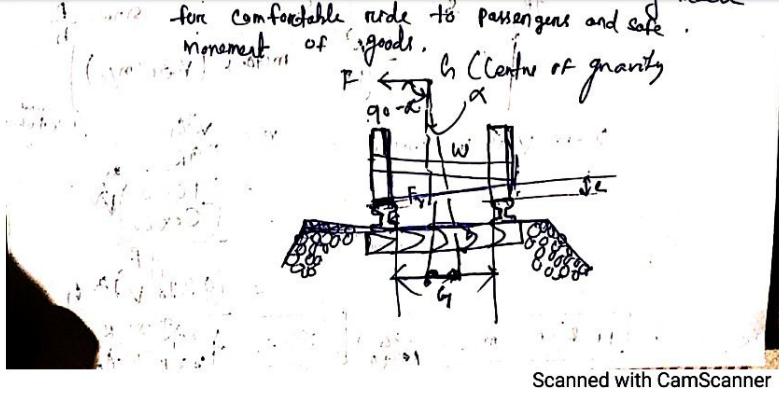 for comfortable ride to passengers and safe
movement of goods.
F
G (Centre of gravity
90-α
α
W
e
G
Scanned with CamScanner